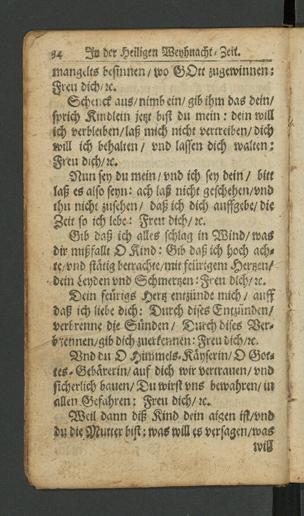 94 In der Heiligen Weyhnacht-Zeit.
mangelts besinnen / wo GOtt zugewinnen:
Freu dich / ꝛc.
Schenck aus / nimb ein / gib ihm das dein /
sprich Kindlein jetzt bist du mein: dein will
ich verbleiben / laß mich nicht vertreiben / dich
will ich behalten / vnd lassen dich walten:
Freu dich / ꝛc.
Nun sey du mein / vnd ich sey dein / bitt
laß es also seyn: ach laß nicht geschehen / vnd
thu nicht zusehen / daß ich dich auffgebe / die
Zeit so ich lebe: Freu dich / ꝛc.
Gib daß ich alles schlag in Wind / was
dir mißfalt O Kind: Gib daß ich hoch ach-
te / vnd stätig betrachte / mit feürigem Hertzen /
dein Leyden vnd Schmertzen: Freu dich / ꝛc.
Dein feürigs Hertz entzünde mich / auff
daß ich liebe dich: Durch dises Entzünden /
verbrenne die Sünden / Durch dises Ver-
brennen / gib dich zuerkennen: Freu dich / ꝛc.
Vnd du O Himmels-Käyserin / O Got-
tes-Gebärerin / auf dich wir vertrauen / vnd
sicherlich bauen / Du wirst vns bewahren / in
allen Gefahren: Freu dich / ꝛc.
Weil dann diß Kind dein aigen ist / vnd
du die Mutter bist: was will es versagen / was
will